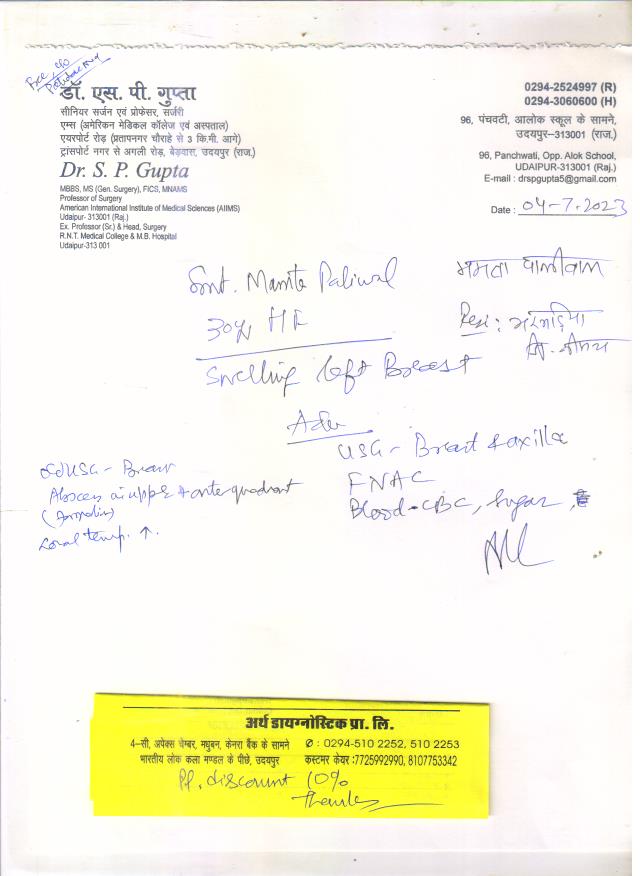 Free, c/o
डॉ. एस. पी. गुप्ता
सीनियर सर्जन एवं प्रोफेसर, सर्जरी
एम्स (अमेरिकन मेडिकल कॉलेज एवं अस्पताल)
एयरपोर्ट रोड़ (प्रतापनगर चौराहे से 3 कि.मी. आगे)
ट्रांसपोर्ट नगर से अगली रोड़, बेड़वास, उदयपुर (राज.)
Dr. S. P. Gupta
MBBS, MS (Gen. Surgery), FICS, MNAMS
Professor of Surgery
American International Institute of Medical Sciences (AIIMS)
Udaipur- 313001 (Raj.)
Ex. Professor (Sr.) & Head, Surgery
R.N.T. Medical College & M.B. Hospital
Udaipur-313 001
0294-2524997 (R)
0294-3060600 (H)
96, पंचवटी, आलोक स्कूल के सामने,
उदयपुर-313001 (राज.)
96, Panchwati, Opp. Alok School,
UDAIPUR-313001 (Raj.)
E-mail : drspgupta5@gmail.com
Date : 04-7-2023
Smt. Mamta Paliwal
ममता पालीवाल
30y HF
Resi :
Swelling left Breast
Adv
USG - Breast & axilla
FNAC
Blood - CBC, Sugar,
USG - Breast
Abscess in upper & outer quadrant
Local temp. ↑.
अर्थ डायग्नोस्टिक प्रा. लि.
4-सी, अपेक्स चेम्बर, मधुबन, केनरा बैंक के सामने
भारतीय लोक कला मण्डल के पीछे, उदयपुर
✆ : 0294-510 2252, 510 2253
कस्टमर केयर :7725992990, 8107753342
Pl. discount 10%
Thanks